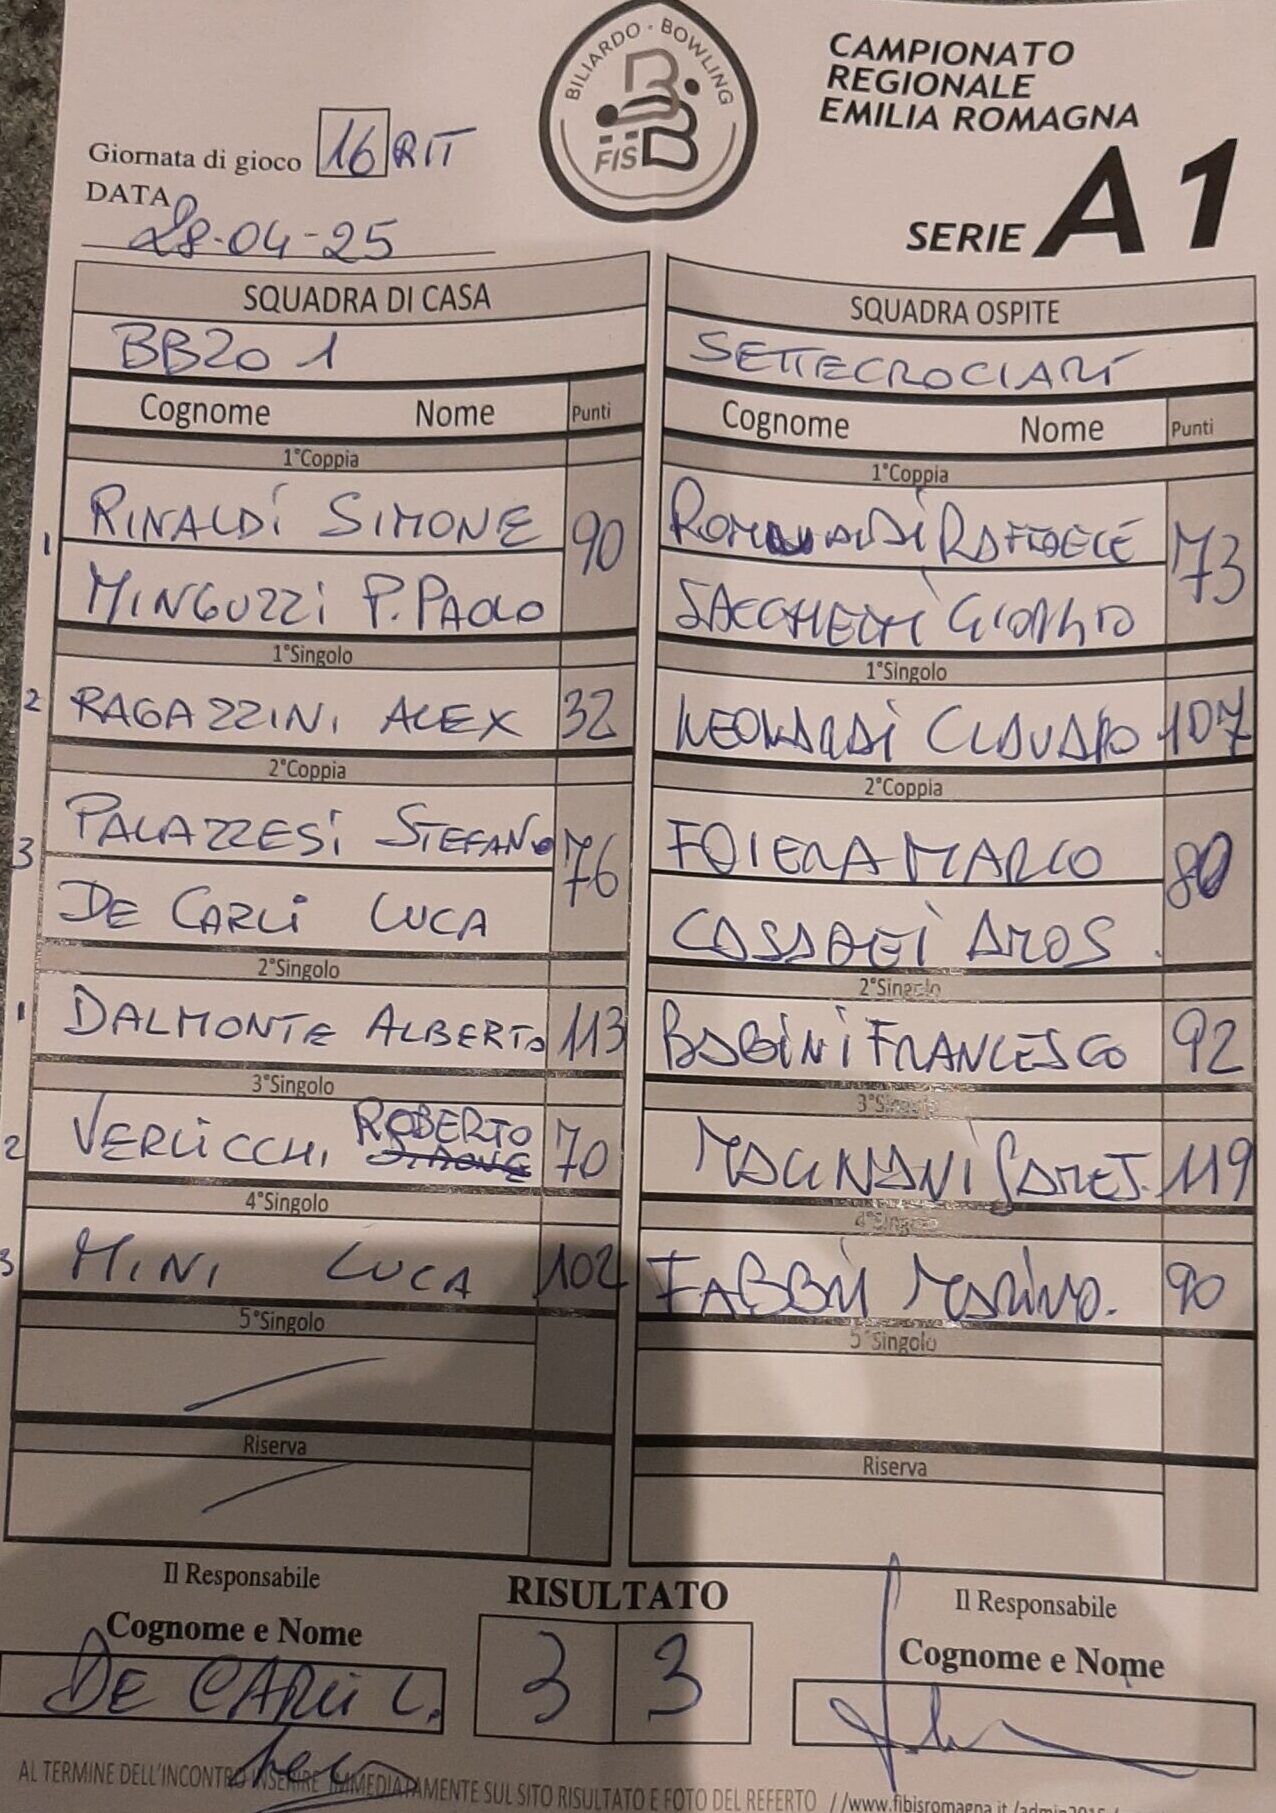 BILIARDO · BOWLING
FISBB
CAMPIONATO
REGIONALE
EMILIA ROMAGNA
SERIE A1
Giornata di gioco 16 RIT
DATA
28-04-25
SQUADRA DI CASA
BB20 1
Cognome Nome Punti
1°Coppia
1 RINALDI SIMONE 90
MINGUZZI P.PAOLO
1°Singolo
2 RAGAZZINI ALEX 32
2°Coppia
3 PALAZZESI STEFANO 76
DE CARLI LUCA
2°Singolo
1 DALMONTE ALBERTO 113
3°Singolo
2 VERLICCHI ROBERTO 70
4°Singolo
3 MINI LUCA 102
5°Singolo
Riserva
SQUADRA OSPITE
SETTECROCIARI
Cognome Nome Punti
1°Coppia
RAFFAELE 73
SACCHETTI GIORGIO
1°Singolo
LEONARDI CLAUDIO 107
2°Coppia
FOIERA MARCO 80
CASADEI AMOS
2°Singolo
BABINI FRANCESCO 92
3°Singolo
MAGNANI 119
4°Singolo
FABBRI MARINO. 90
5°Singolo
Riserva
Il Responsabile
Cognome e Nome
DE CARLI L.
RISULTATO
3 3
Il Responsabile
Cognome e Nome
AL TERMINE DELL'INCONTRO INSERIRE IMMEDIATAMENTE SUL SITO RISULTATO E FOTO DEL REFERTO //www.fibisromagna.it